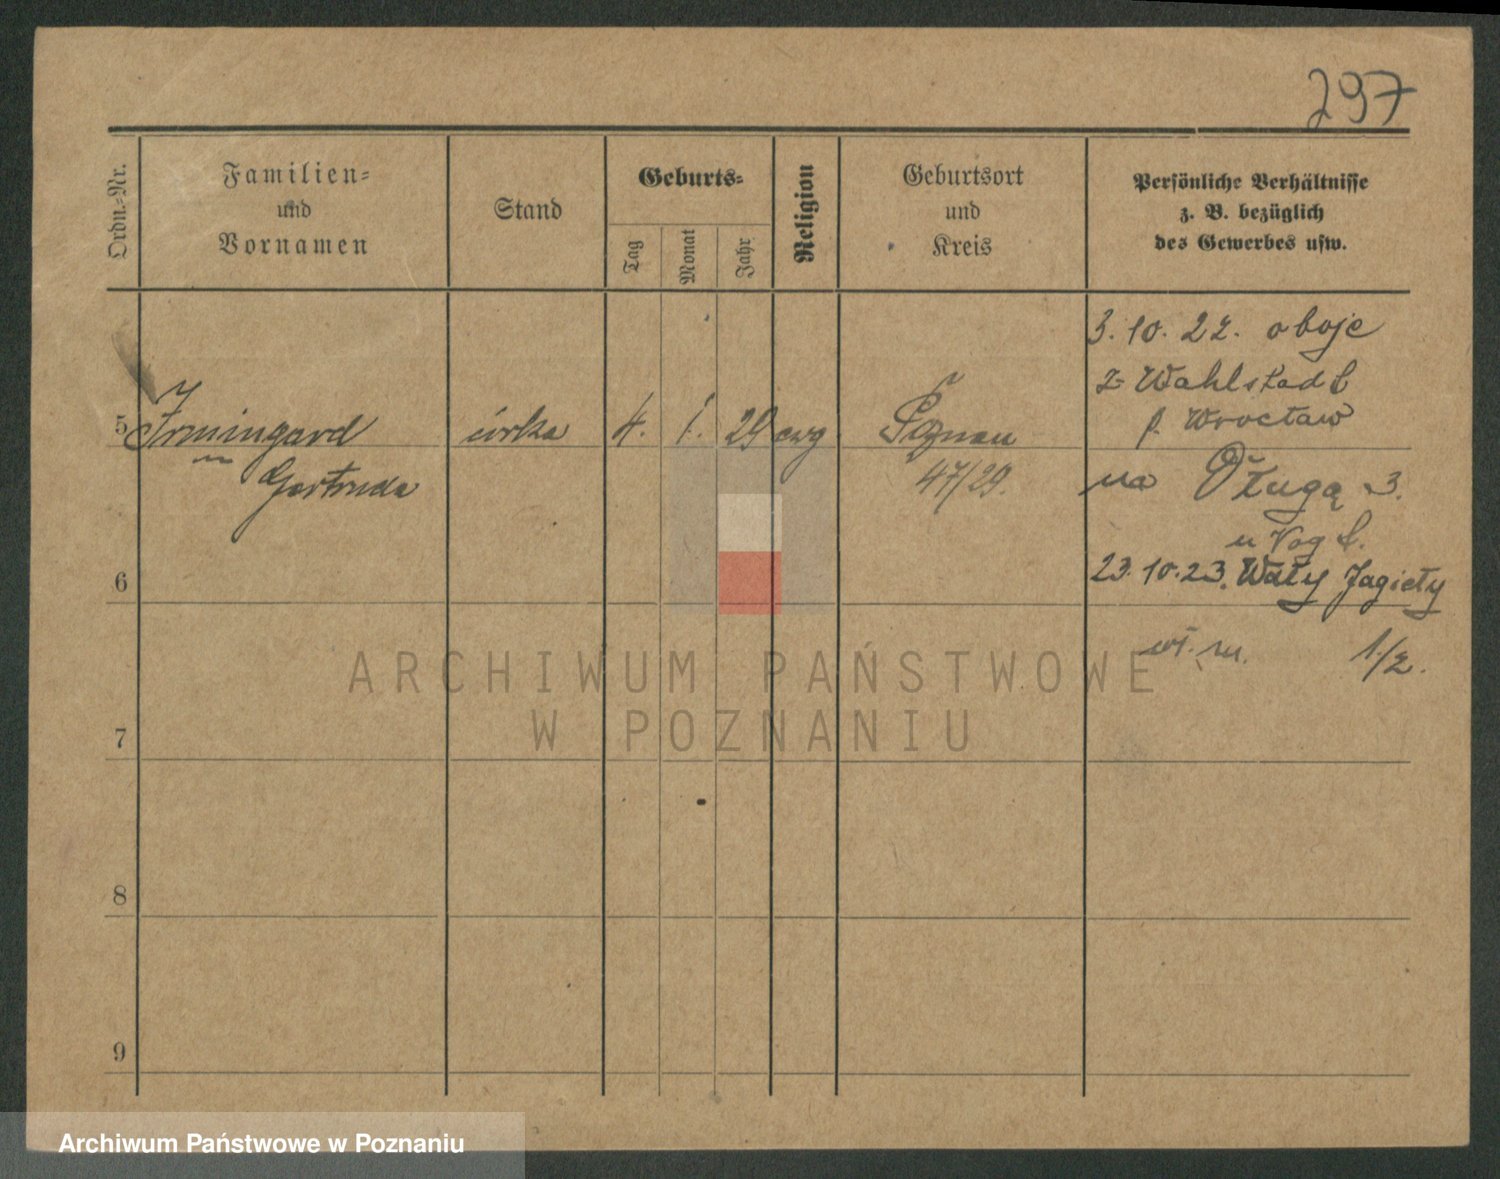 297
Ordn.-Nr.
Familien-
und
Vornamen
Stand
Geburts-
Tag
Monat
Jahr
Religion
Geburtsort
und
Kreis
Persönliche Verhältnisse
z. B. bezüglich
des Gewerbes usw.
3. 10. 22. oboje
z Wahlstadt
p. Wrocław
5 Irmingard córka 4. 1. 29 ewg Poznań
Gertruda 47/29.
na Długą 3.
u Vogt.
6
23.10.23. Wały Jagiełły
1/2.
7
8
9
ARCHIWUM PAŃSTWOWE
W POZNANIU
Archiwum Państwowe w Poznaniu